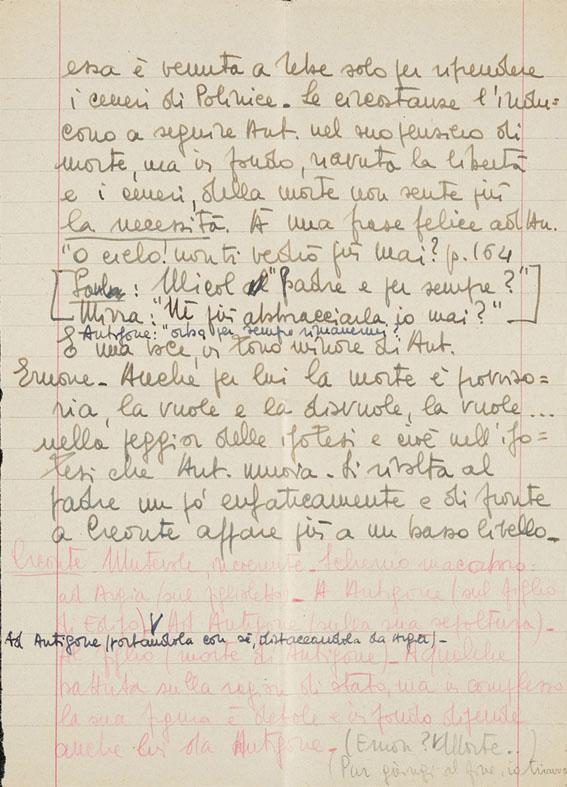 essa è venuta a Tebe solo per riprendere
i ceneri di Polinice_ Le circostanze l'indu=
cono a seguire Ant. nel suo pensiero di
morte, ma in fondo, riavuta la libertà
e i ceneri, della morte non sente più
la necessità. A una frase felice ad An.
"O cielo! non ti vedrò più mai? p. 164
[Saul: Micol "Padre e per sempre?"
Mirra: "Nè più abbracciarla io mai?"]
Antigone: "orba per sempre rimanermi?
È una voce in tono minore di Ant.
Emone_ Anche per lui la morte è provviso=
ria, la vuole e la disvuole, la vuole...
nella peggior delle ipotesi e cioè nell'ipo=
tesi che Ant. muoia_ Si rivolta al
padre un pò enfaticamente e di fronte
a Creonte appare più a un basso livello_
Creonte Mutevole, incruente_ Scherno macabro:
ad Argia (sul figlioletto)_ A Antigone (sul figlio
di Edipo) V Ad Antigone (sulla sua sepoltura)_
Ad Antigone (portandola con sé, distaccandola da Argia)_
Al figlio (morte di Antigone)_ A qualche
battuta sulla ragion di stato, ma in complesso
la sua figura è debole e in fondo dipende
anche lui da Antigone_ (Emon? V Morte..)
(Pur giungi al fine, io